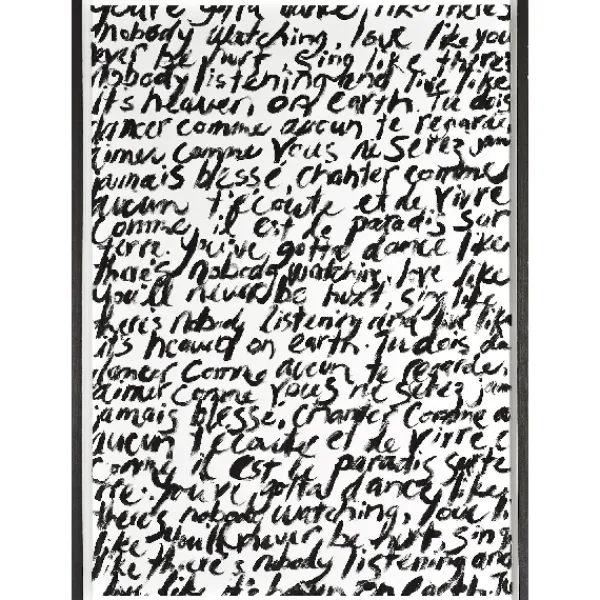 you've gotta dance like there's
nobody watching, love like you
ever be hurt, sing like there
nobody listening and live like
it's heaven, on earth. Tu dois
dancer comme aucun te regarde
aimer comme vous ne serez jam
jamais blessé, chanter comme
aucun t'écoute et de vivre
comme il est de paradis sur
terre. You've gotta dance like
there's nobody watching, love like
you'll never be hurt, sing like
there's nobody listening and live like
it's heaven on earth. Tu dois da
dancer comme aucun te regarder
aimer comme vous ne serez jam
jamais blesse, chanter comme a
aucun t'écoute et de vivre, c
comme il est de paradis surte
rre. You've gotta dance like
there's nobody watching, love l
like you'll never be hurt, sing
like there's nobody listening and
live like it's heaven on earth. Tu